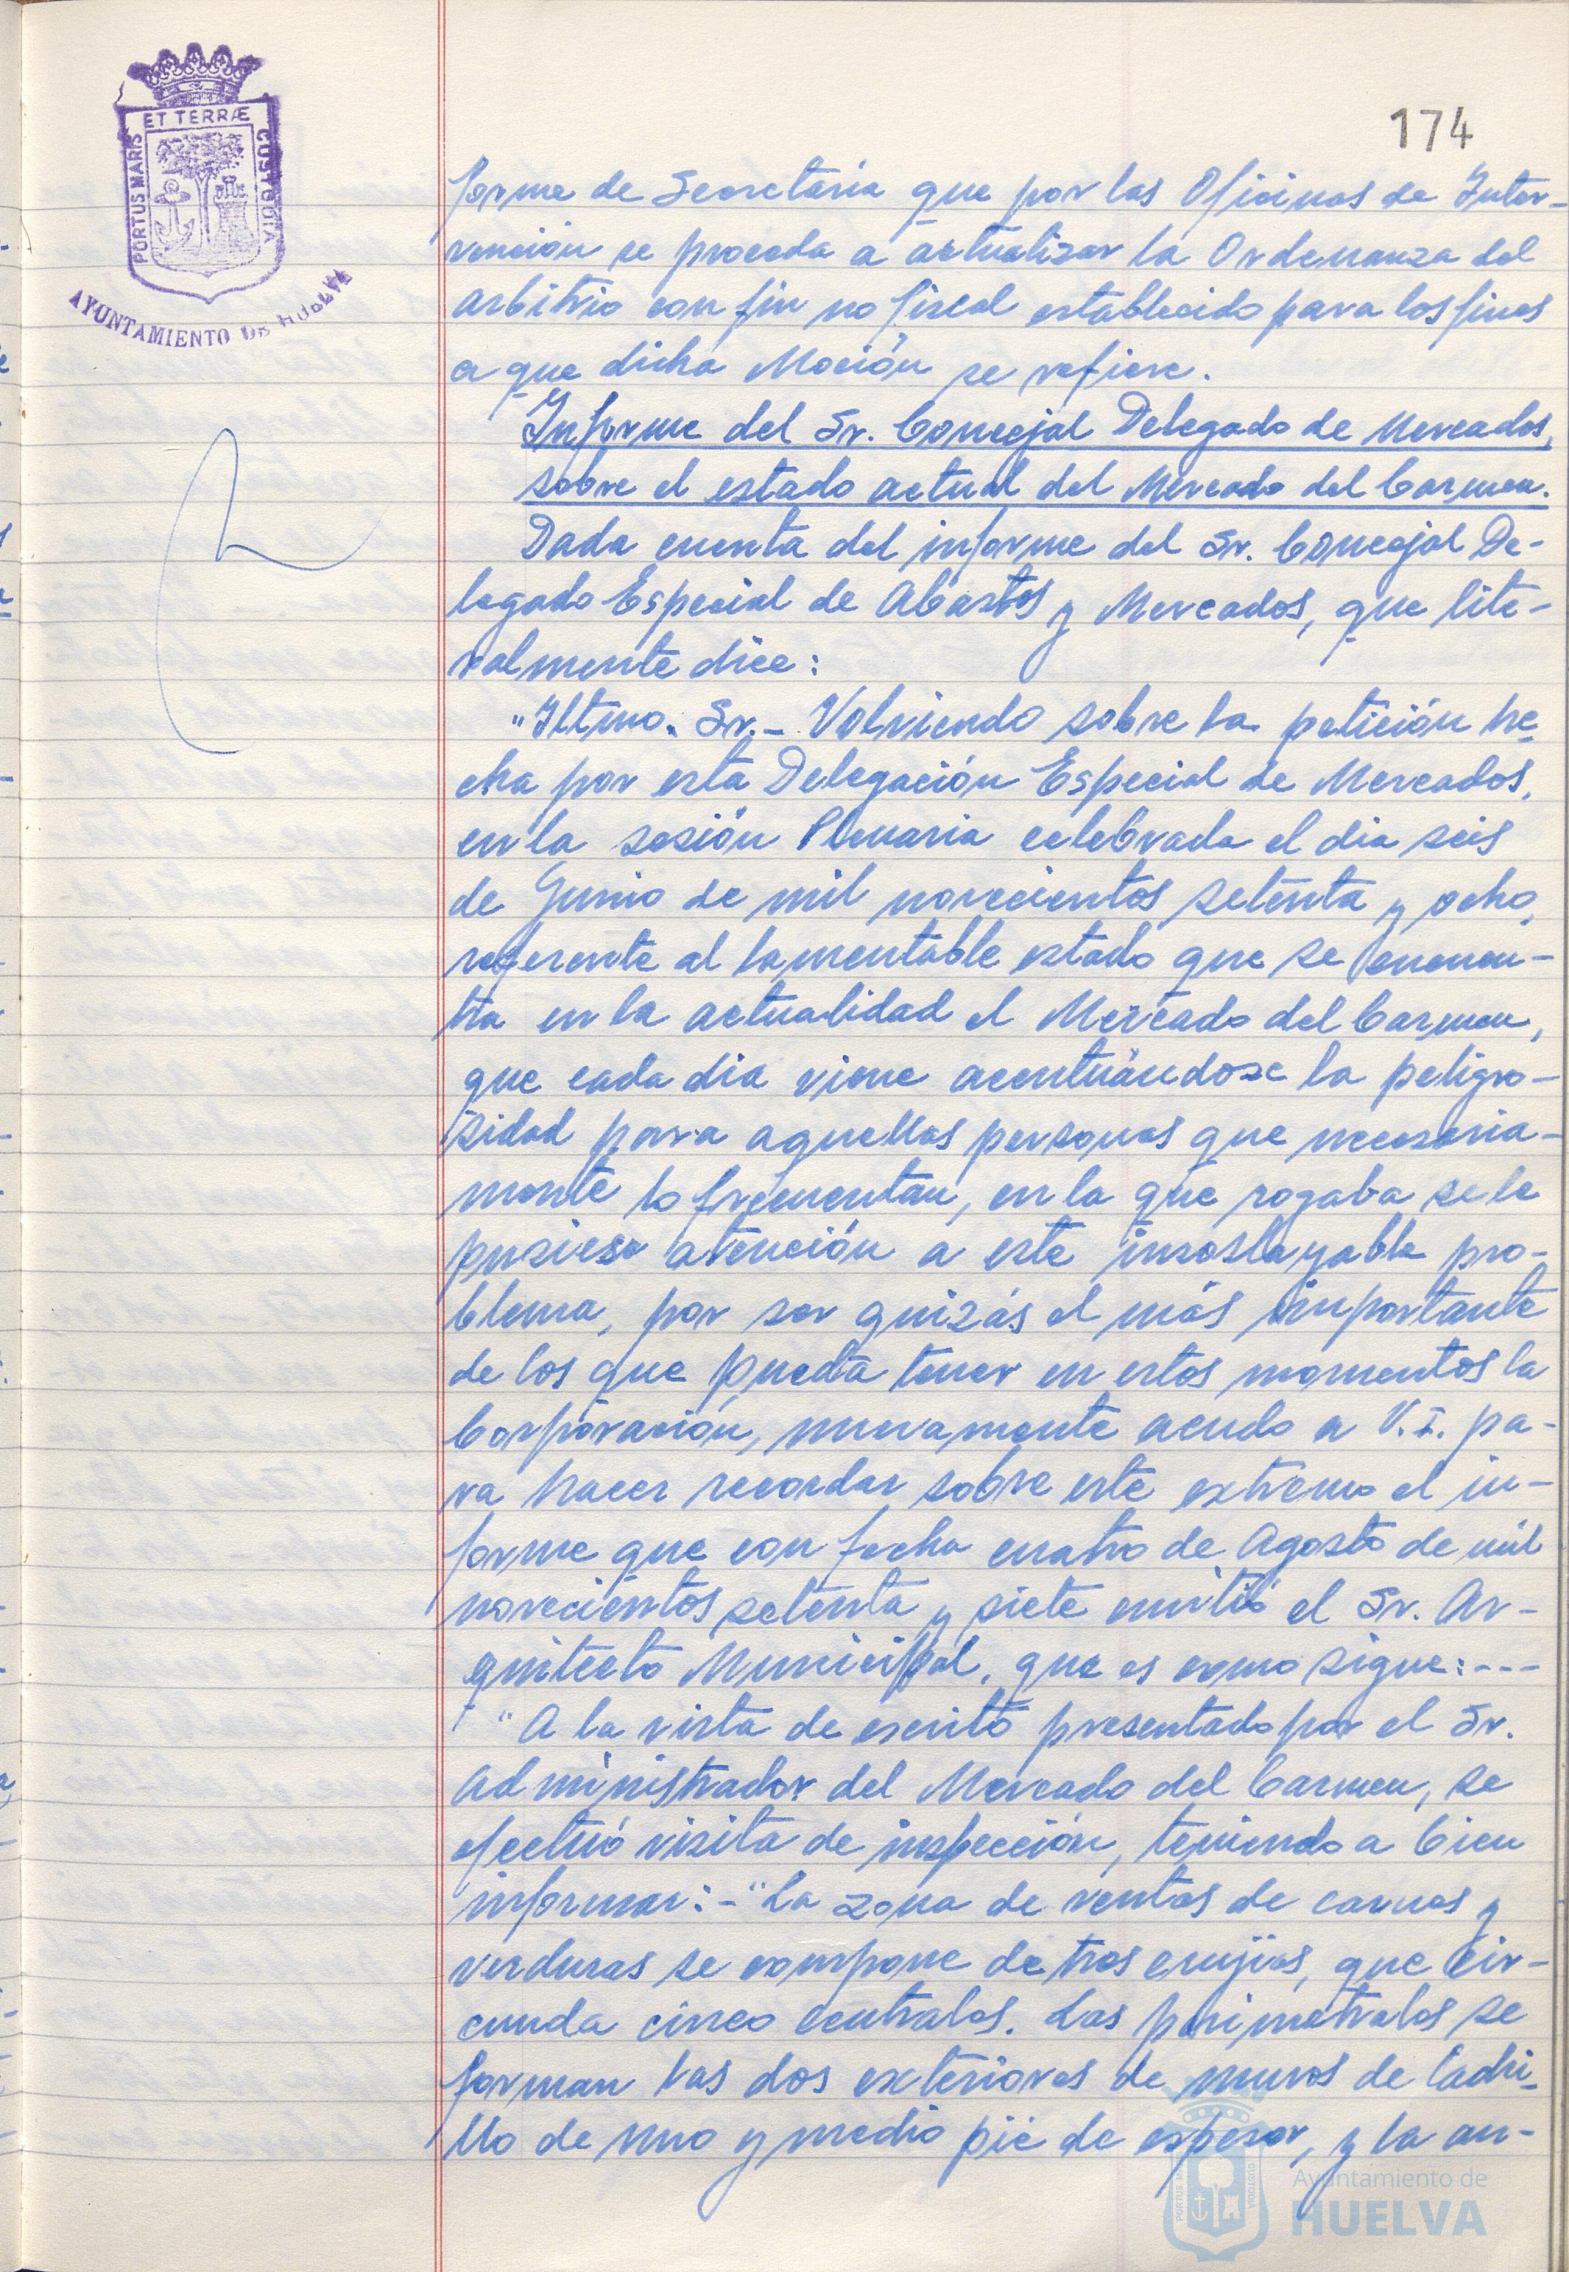 ET TERRÆ
PORTUS MARIS
CUSTODIA
AYUNTAMIENTO DE HUELVA
174
forme de Secretaría que por las Oficinas de Inter-
vención se proceda a actualizar la Ordenanza del
arbitrio con fin no fiscal establecido para los fines
a que dicha Moción se refiere.
Informe del Sr. Concejal Delegado de Mercados,
sobre el estado actual del Mercado del Carmen.
Dada cuenta del informe del Sr. Concejal De-
legado Especial de Abastos y Mercados, que lite-
ralmente dice:
"Iltmo. Sr.- Volviendo sobre la petición he-
cha por esta Delegación Especial de Mercados,
en la sesión Plenaria celebrada el dia seis
de Junio de mil novecientos setenta y ocho,
referente al lamentable estado que se encuen-
tra en la actualidad el Mercado del Carmen,
que cada dia viene acentuándose la peligro-
sidad para aquellas personas que necesaria-
mente lo frecuentan, en la que rogaba se le
pusiese atención a este insoslayable pro-
blema, por ser quizás el más importante
de los que pueda tener en estos momentos la
Corporación, nuevamente acudo a V.I. pa-
ra hacer recordar sobre este extremo el in-
forme que con fecha cuatro de Agosto de mil
novecientos setenta y siete emitió el Sr. Ar-
quitecto Municipal, que es como sigue:---
"A la vista de escrito presentado por el Sr.
Administrador del Mercado del Carmen, se
efectuó visita de inspección, teniendo a bien
informar:-"La zona de ventas de carnes y
verduras se compone de tres crujías, que cir-
cunda cinco centrales. Las perimetrales se
forman las dos exteriores de muros de ladri-
llo de uno y medio pié de espesor, y la an-
PORTUS M
CUSTODIA
Ayuntamiento de
HUELVA